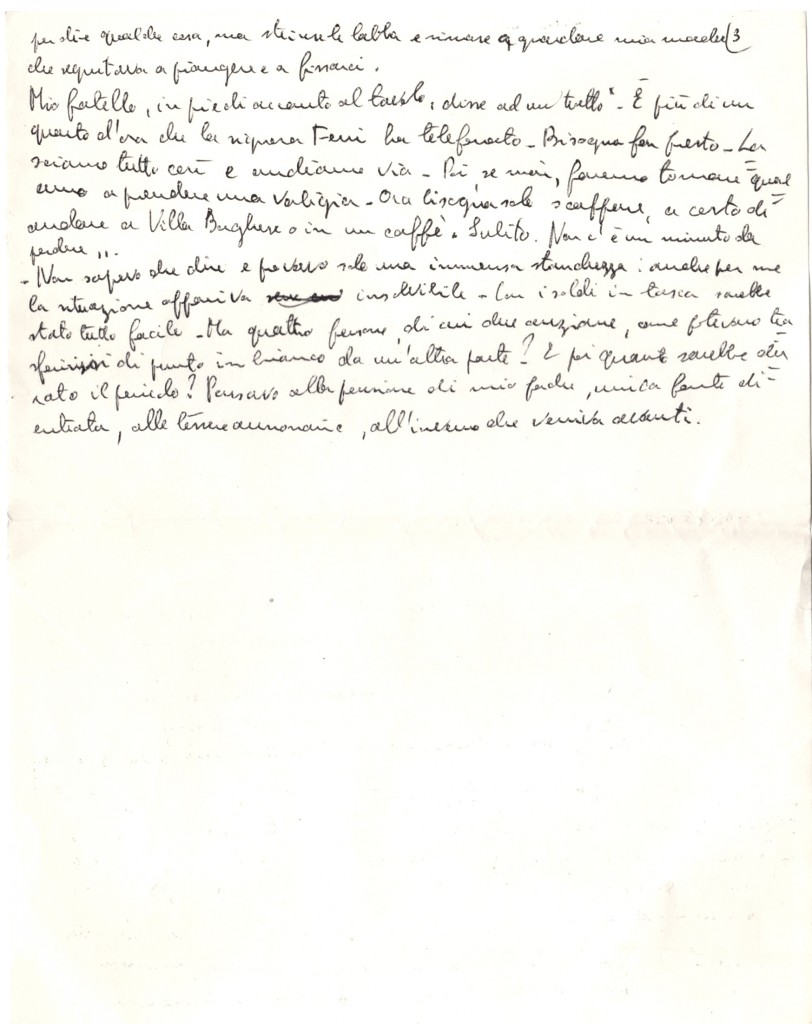 per dire qualche cosa, ma strinse le labbra e rimase a guardare mia madre (3
che seguitava a piangere e a fissarci.
Mio fratello, in piedi accanto al tavolo, disse ad un tratto "- È più di un
quarto d'ora che la signora Ferri ha telefonato - Bisogna far presto - La
sciamo tutto così e andiamo via - Poi se mai, faremo tornare qual=
cuno a prendere una valigia - Ora bisogna solo scappare, a costo di=
andare a Villa Borghese o in un caffè. Subito. Non c'è un minuto da
perdere ,,.
- Non sapevo che dire e provavo solo una immensa stanchezza: anche per me
la situazione appariva insolubile - Con i soldi in tasca sarebbe
stato tutto facile - Ma quattro persone, di cui due anziane, come potevano tra
sferirsi di punto in bianco da un'altra parte? E poi quanto sarebbe du
rato il pericolo? Pensavo alla pensione di mio padre, unica fonte di=
entrata, alle tessere annonarie, all'inverno che veniva avanti.